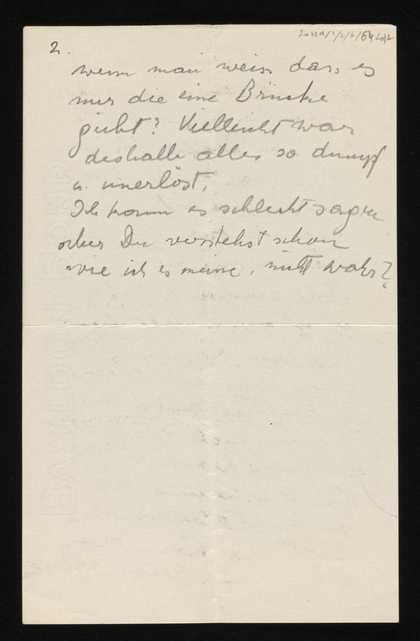 2.
wenn man weiss dass es
nur die eine Brücke
giebt? Vielleicht war
deshalb alles so dumpf
u. unerlöst.
Ich kann es schlecht sagen
aber Du verstehst schon
wie ich es meine, nicht wahr?